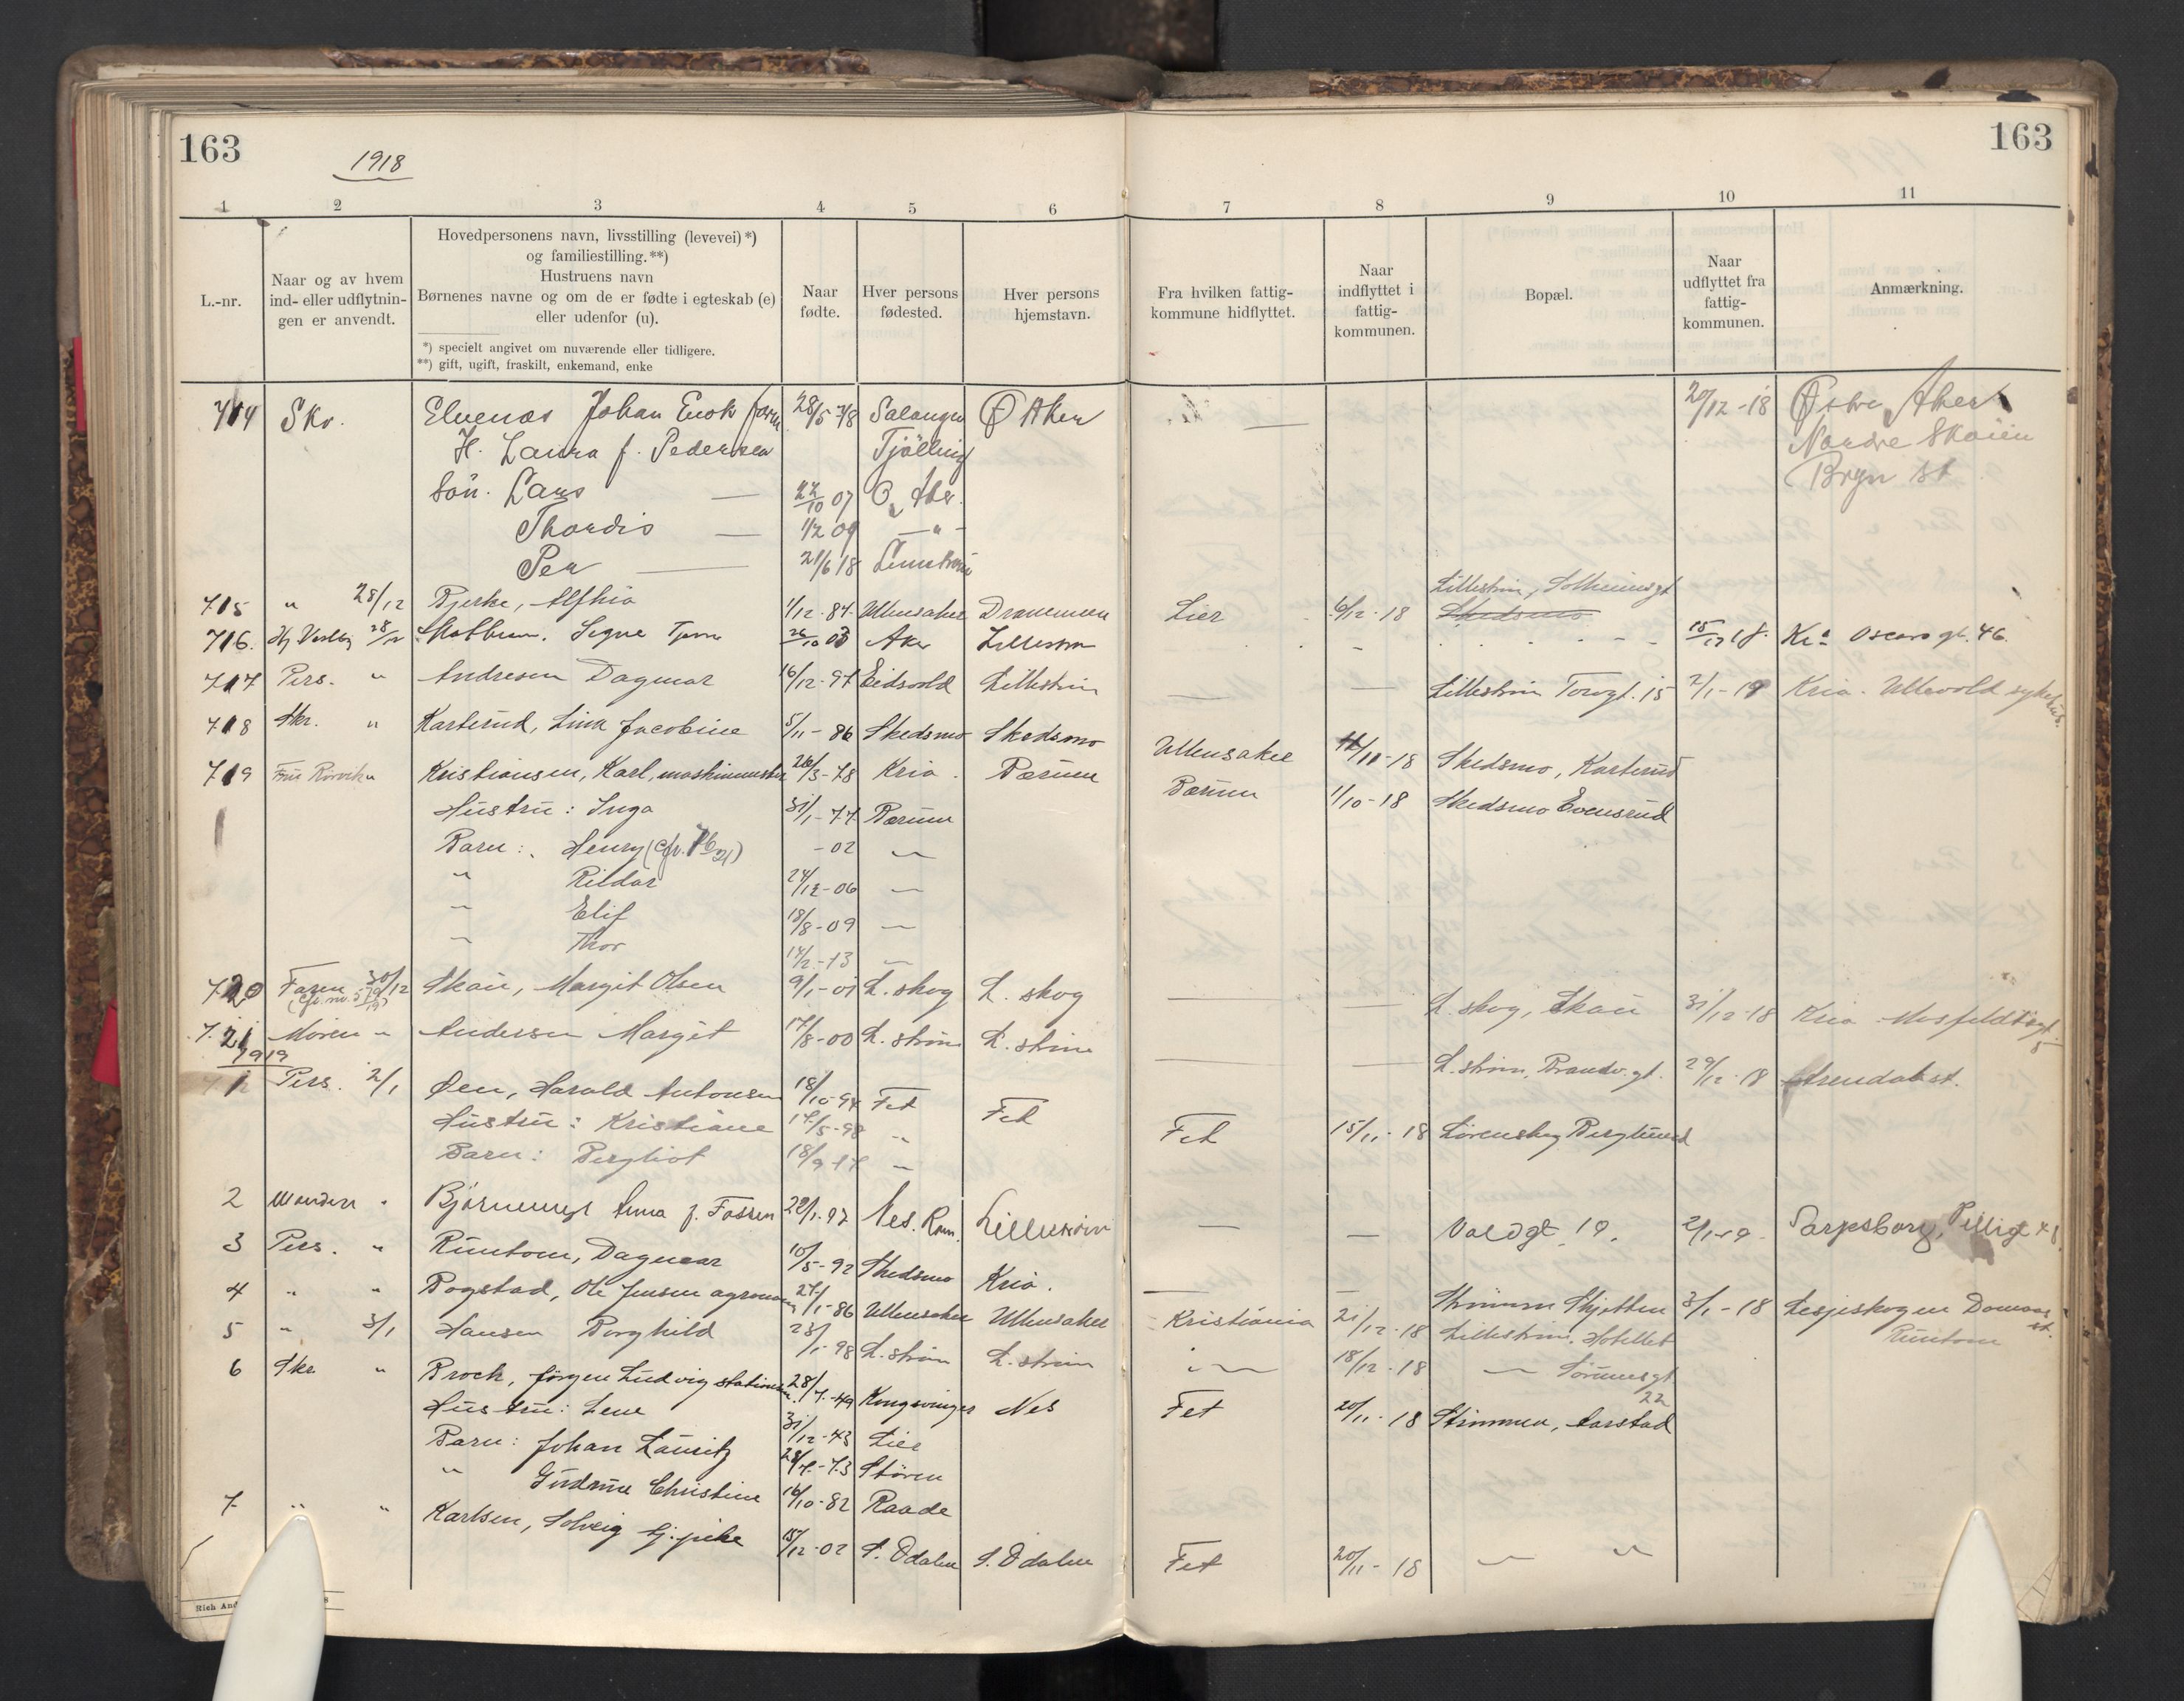 163
1918
163
1 2 3 4 5 6 7 8 9 10 11
L.-nr.
Naar og av hvem
ind- eller udflytnin-
gen er anvendt.
Hovedpersonens navn, livsstilling (levevei) *)
og familiestilling. **)
Hustruens navn
Børnenes navne og om de er fødte i egteskab (e)
eller udenfor (u).
*) specielt angivet om nuværende eller tidligere.
**) gift, ugift, fraskilt, enkemand, enke
Naar
fødte.
Hver persons
fødested.
Hver persons
hjemstavn.
Fra hvilken fattig-
kommune hidflyttet.
Naar
indflyttet i
fattig-
kommunen.
Bopæl.
Naar
udflyttet fra
fattig-
kommunen.
Anmærkning.
714 Skr. Elvenas Johan Enok 28/5 78 Salangen Ø Aker — 20/12-18 Østre Aker
H. Laura f. Pedersen Tjølling Nordre Skøien
Sön. Lars — 22/10 07 Ø Aker. Bryn St
Thordis — 1/2 09 — " —
Per — 21/6 18 Lillestrøm
Lillestrøm, Solheimsgt
715 " 28/12 Bjerke, Alfhia 1/12-84 Ullensaker Drammen Lier 6/12-18 Skedsmo
716. 28/12 Signe 26/10 03 Aker Lillestrøm - 15/12 18. Kr.a Oscars gt. 46.
717 Pers. " Andresen Dagmar 16/12-97 Eidsvold Lillestrøm — — Lillestrøm Torvgt. 15 2/1-19 Kria. Ullevold sykehus.
718 Skr. " Karterud, Lina Jacobine 5/11-86 Skedsmo Skedsmo Ullensaker /11-18 Skedsmo, Karterud
719 Fru Rørvik " Kristiansen, Karl, maskinmester 26/3-78 Kria. Bærum Bærum 1/10-18 Skedsmo Evensrud
Hustru: Inga 31/1-77 Bærum
Barn: Henry (cfr. 76/21) -02 "
" Reidar 24/12-06 "
" Elif 18/8-09 "
" Thor 14/2-13 "
720 Faren 30/12 Skau, Margit Olsen 9/1-01 L. skog L. skog — — L. skog, Skau 31/12-18 Kria
721 Moren " Andersen Margit 17/8-00 L. strøm L. strøm — — L. strøm, Brandv.gt. 29/12-18 Arendal st.
1919
1 Pers. 2/1 Øen, Harald Antonsen 18/10-94 Fet Fet Fet 15/11-18 Lørenskog
Hustru: Kristiane 14/5-98 "
Barn: Bergliot 18/9-17 "
2 " Anna f. Fossen 22/1-97 Nes. Rom. Lillestrøm — — Voldgt 19. 2/1-19. Sarpsborg,
3 Pers. " Runtom, Dagmar 10/5-92 Skedsmo Kria. — — Strømmen Skjetten 3/1-18 Lesjeskogen Domaas st.
Runtom
4 " " Bogstad, Ole Jensen agronom 27/1-86 Ullensaker Ullensaker Kristiania 21/12-18 Lillestrøm, Hotellet
5 " 3/1 Hansen Borghild 23/1-98 L. strøm L. strøm " 18/12-18 "
22
6 Skr " Brock, Jørgen Ludvig 28/7-49 Kongsvinger Nes Fet 20/11-18 Strømmen, Aarstad
Hustru: Lene 31/12-43 Lier
Barn: Johan Lauritz 28/7-73 Støren
" Gudrun Christine 16/10-82 Raade
7 " " Karlsen, Solveig tj.pike 15/12-02 S. Odalen S. Odalen Fet 20/11-18 " "